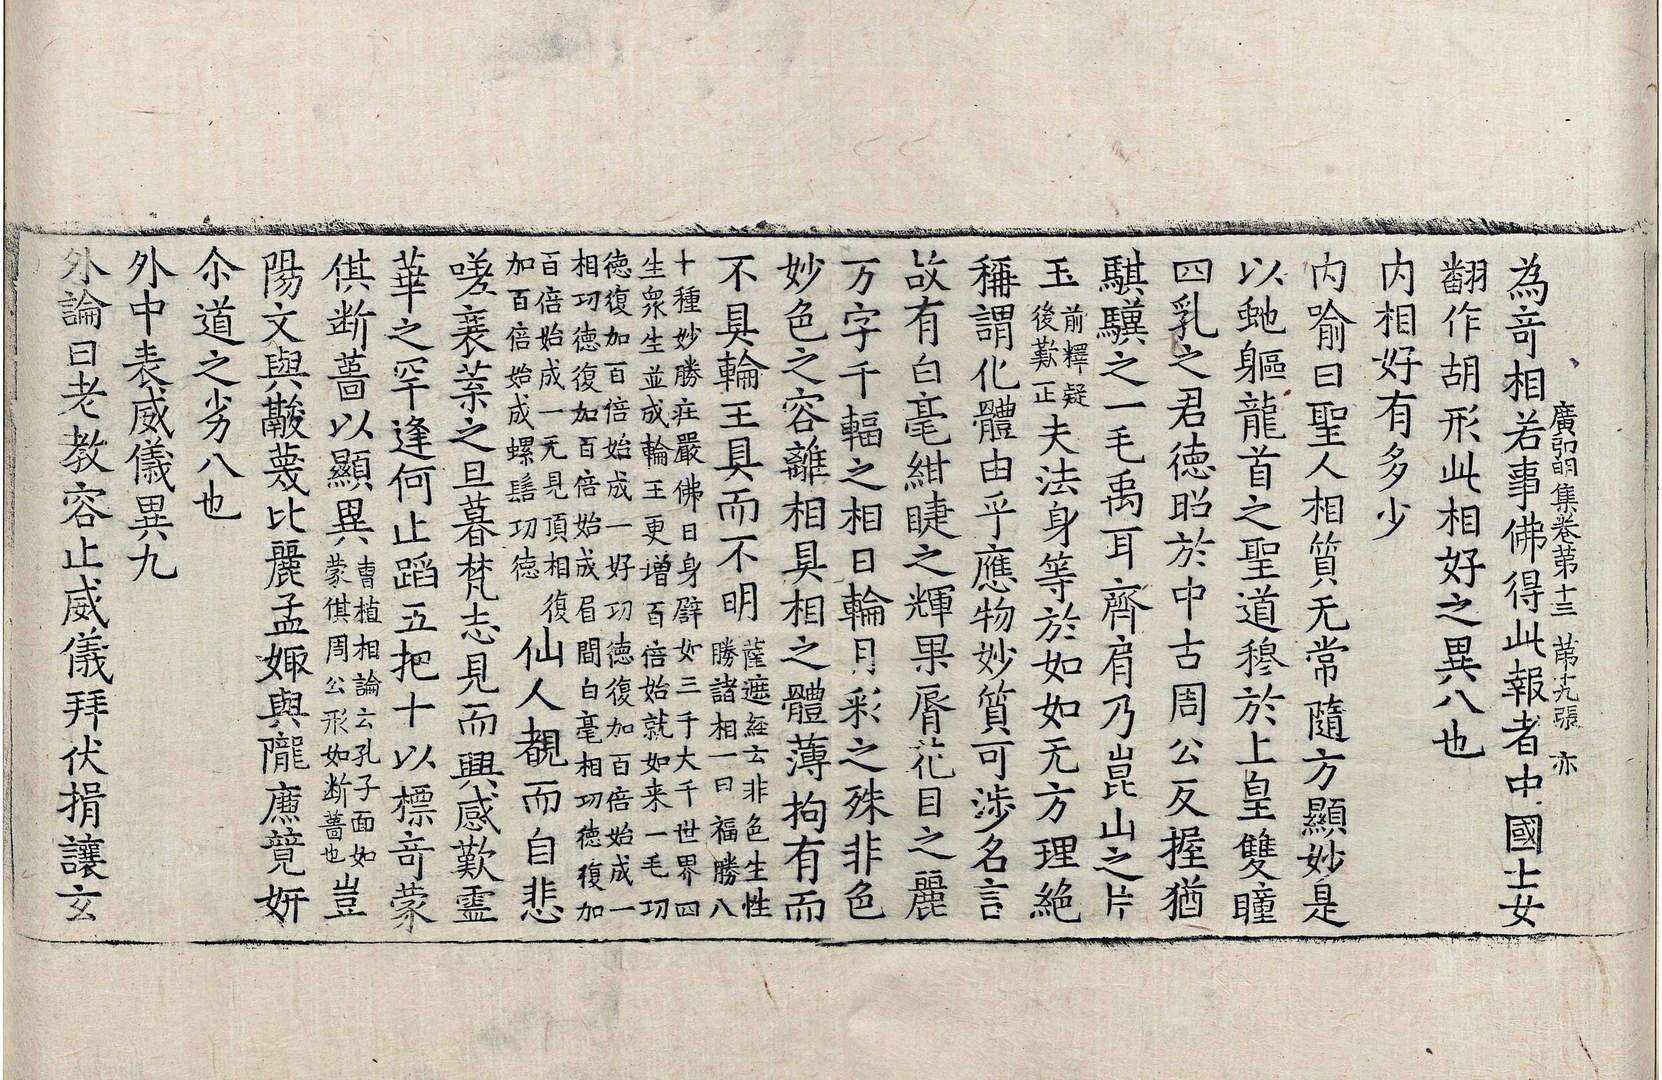 廣弘明集卷第十三 苐十九張 亦
為竒相若事佛得此報者中國士女
翻作胡形此相好之異八也
内相好有多少
内喻曰聖人相質无常隨方顯妙是
以虵軀龍首之聖道穆於上皇雙瞳
四乳之君徳昭於中古周公反握猶
騏驥之一毛禹耳齊肩乃崑山之片
玉前釋疑後歎正夫法身等於如如无方理絶
稱謂化體由乎應物妙質可涉名言
故有白毫紺睫之輝果脣花目之麗
万字千輻之相日輪月彩之殊非色
妙色之容離相具相之體薄拘有而
不具輪王具而不明薩遮經云非色生性勝諸相一曰福勝八
十種妙勝莊嚴佛日身譬如三千大千世界四
生衆生並成輪王更增百倍始就如来一毛功
徳復加百倍始成一好功徳復加百倍始成一
相功徳復加百倍始成眉間白毫相功徳復加
百倍始成一无見頂相復加百倍始成螺髻功徳仙人覩而自悲
嗟衰葉之旦暮梵志見而興感歎靈
華之罕逢何止蹈五把十以標竒蒙
倛断菑以顯異曹植相論云孔子面如蒙倛周公形如断菑也豈
陽文與敽薎比麗孟娵與隴廉競妍
尒道之劣八也
外中表威儀異九
外論曰老教容止威儀拜伏揖讓玄